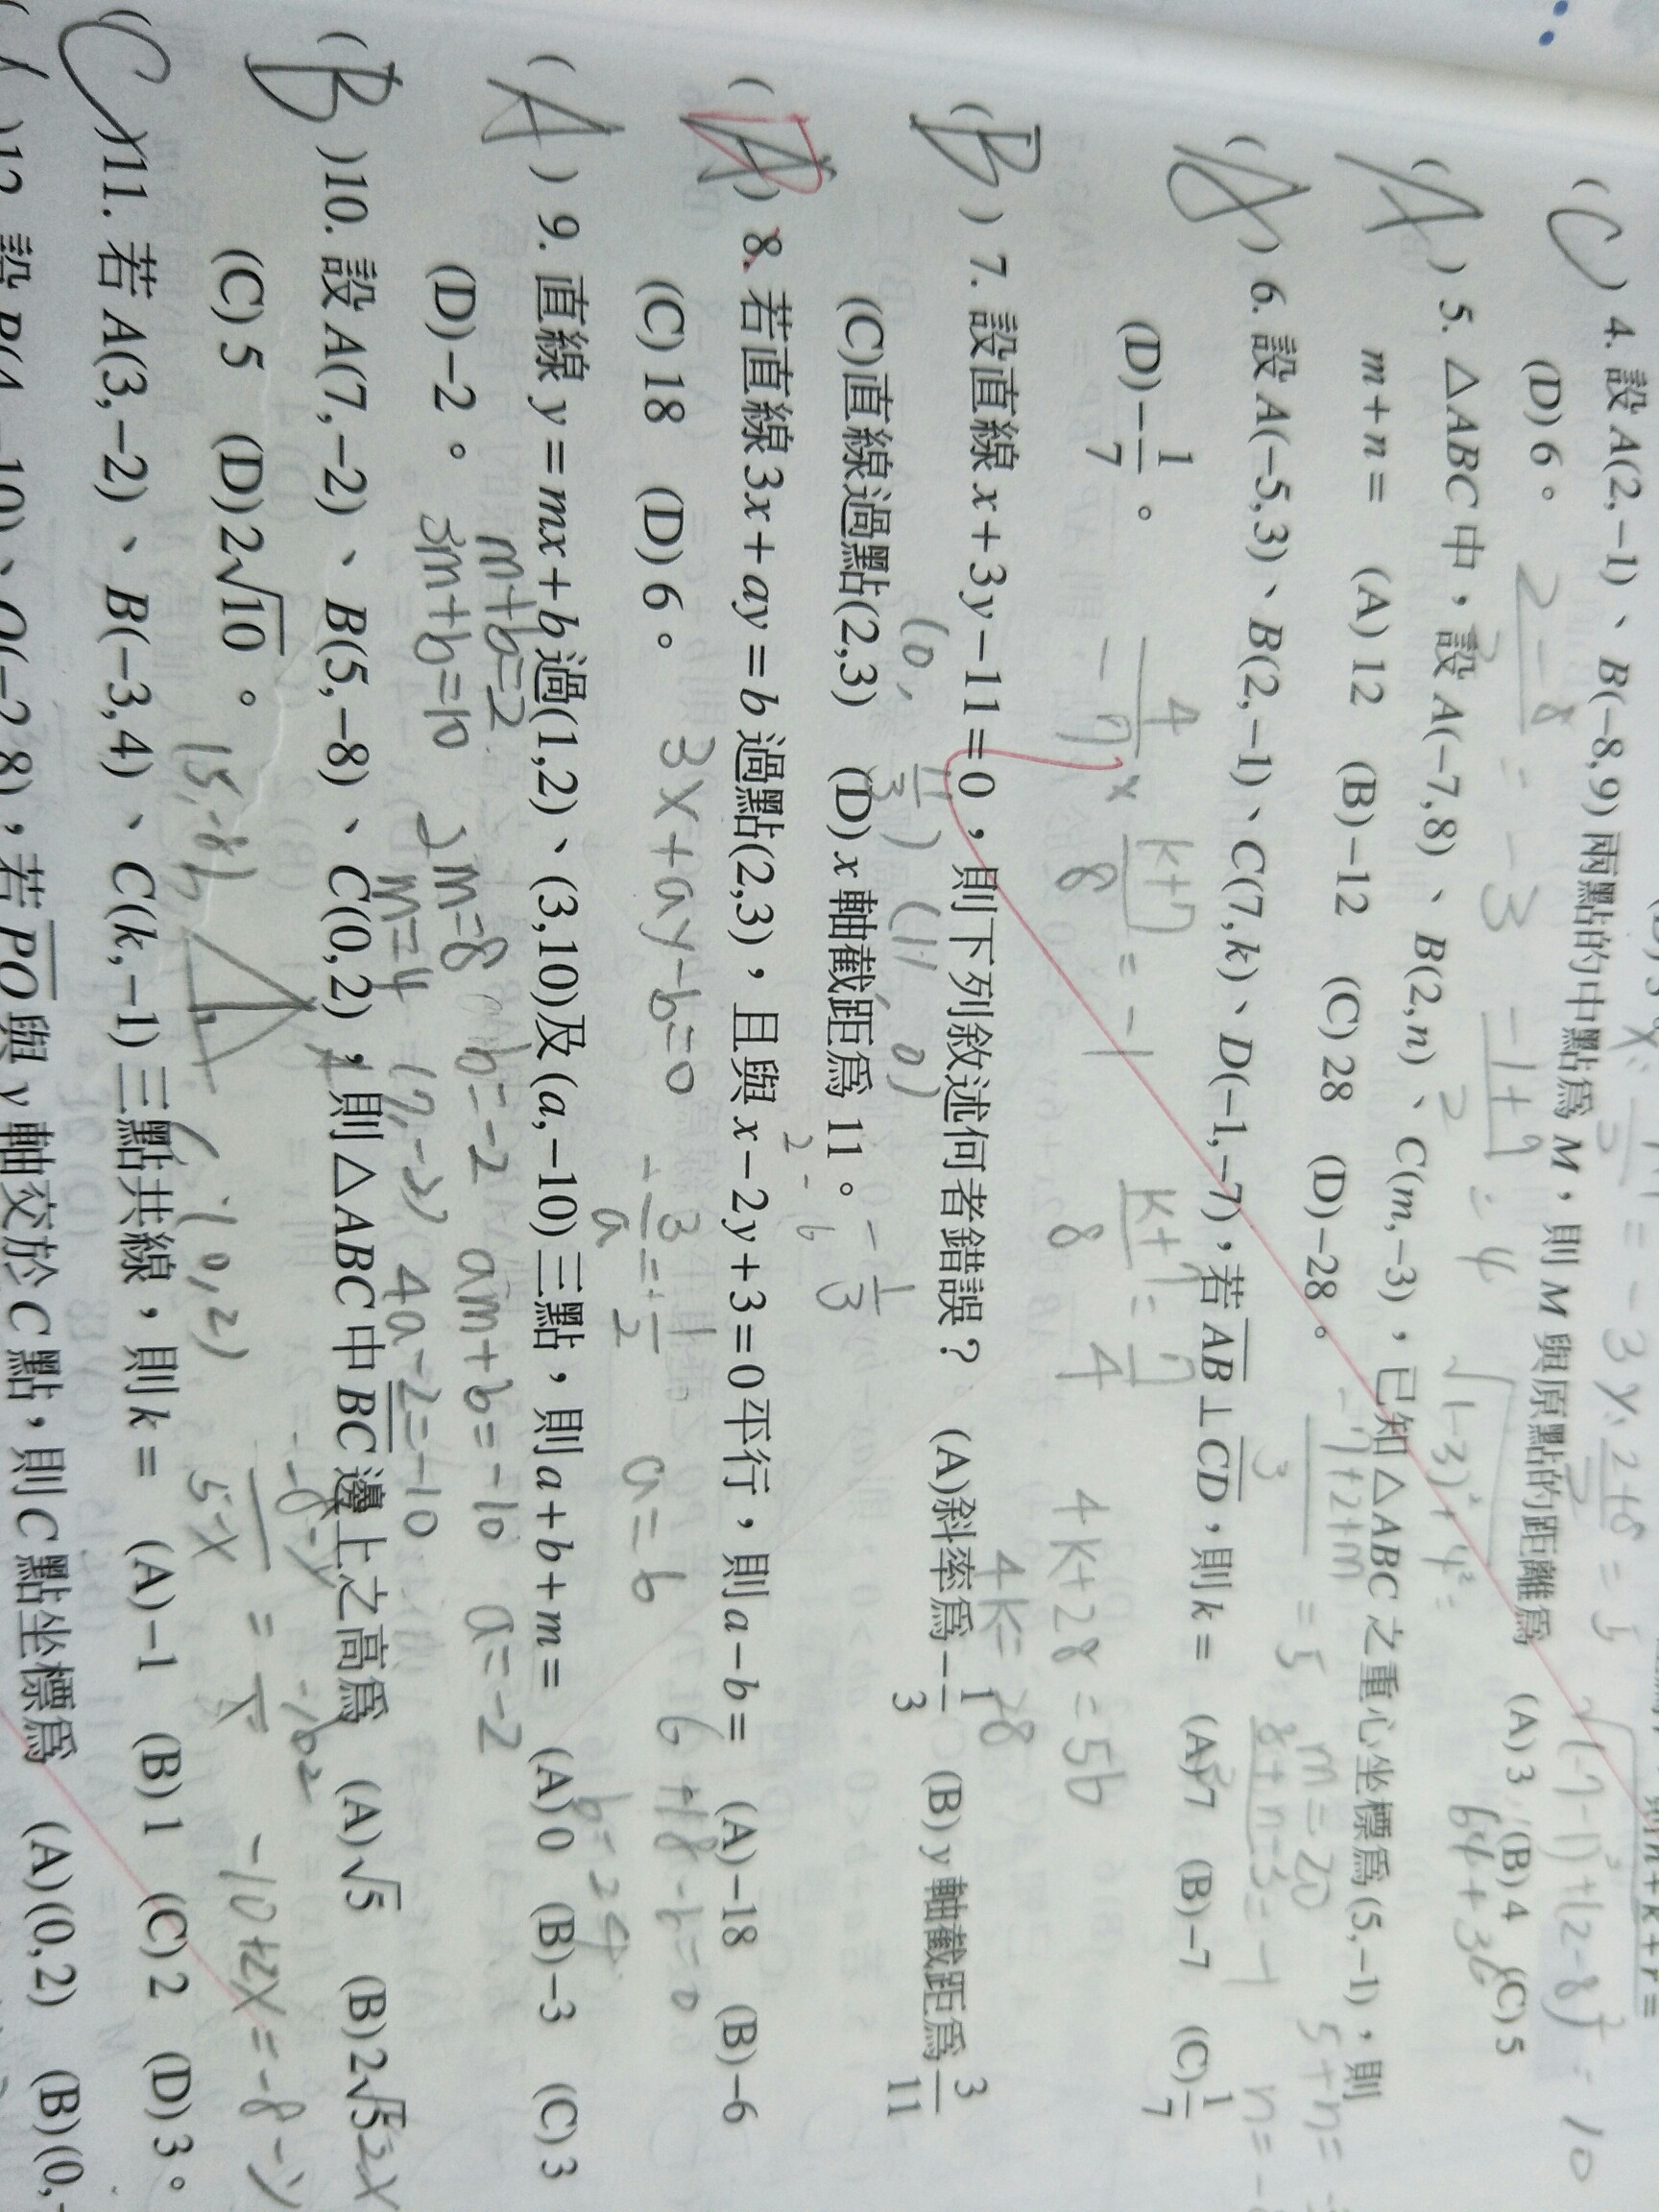 (C) 4. 設 A(2,−1)、B(−8,9) 兩點的中點為 M，則 M 與原點的距離為 (A) 3 (B) 4 (C) 5
(D) 6。
(A) 5. △ABC 中，設 A(−7,8)、B(2,n)、C(m,−3)，已知 △ABC 之重心坐標為 (5,−1)，則
m+n= (A) 12 (B) −12 (C) 28 (D) −28。
(A) 6. 設 A(−5,3)、B(2,−1)、C(7,k)、D(−1,−7)，若 AB⊥CD，則 k= (A) 7 (B) −7 (C) 1/7
(D) −1/7。
4/−7 × k+7/8 = −1
k+7/8 = 7/4
4k+28=56
4k=28
(B) 7. 設直線 x+3y−11=0，則下列敘述何者錯誤？ (A)斜率為 −1/3 (B) y 軸截距為 3/11
(C)直線過點(2,3) (D) x 軸截距為 11。
(0, 11/3) (11 0) −1/3
(A) 8. 若直線 3x+ay=b 過點(2,3)，且與 x−2y+3=0 平行，則 a−b= (A) −18 (B) −6
(C) 18 (D) 6。
3x+ay−b=0 −3/a = 1/2
(A) 9. 直線 y=mx+b 過(1,2)、(3,10)及 (a,−10) 三點，則 a+b+m= (A) 0 (B) −3 (C) 3
(D) −2。
m+b=2
3m+b=10
2m=8
m=4
b=−2
am+b=−10
4a−2=−10
a=−2
(B) 10. 設 A(7,−2)、B(5,−8)、C(0,2)，則 △ABC 中 BC 邊上之高為 (A) √5 (B) 2√5
(C) 5 (D) 2√10。
(7,−2)
(5,−8)
(0,2)
(C) 11. 若 A(3,−2)、B(−3,4)、C(k,−1) 三點共線，則 k= (A) −1 (B) 1 (C) 2 (D) 3。
)12. 設 P(4,−10)、Q(−2,8)，若 PQ 與 y 軸交於 C 點，則 C 點坐標為 (A) (0,2) (B) (0,